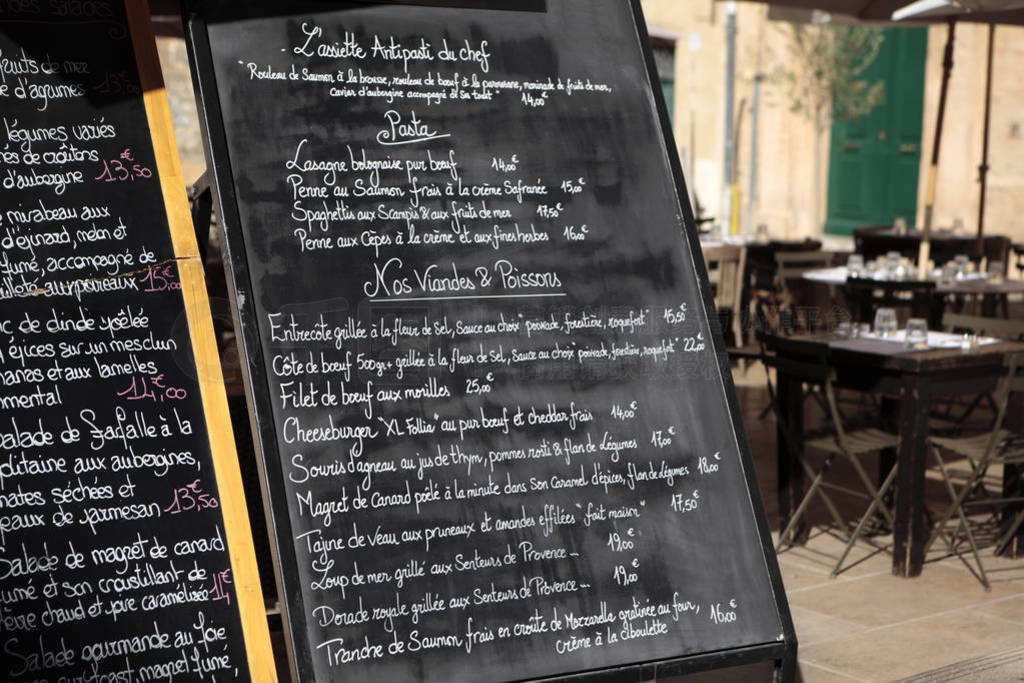 fruits de mer
e d'agrumes 13,
légumes variés
és de croûtons
d'aubergine 13,50
mirabeau aux
melon et
fumé, accompagné de
aux poireaux 15,00
c de dinde poêlée
épices sur un mesclun
et aux lamelles
14,00
Salade de Farfalle à la
aux aubergines,
séchées et
de parmesan 13,50
Salade de magret de canard
fumé et son croustillant de
chaud et poire caramélisée 11€
Salade gourmande au foie
magret fumé,
L'assiette Antipasti du chef
"Rouleau de Saumon à la brousse, rouleau de bœuf à la parmesane, marinade de fruits de mer,
Caviar d'aubergine accompagné de Sa toast" 14,00€
Pasta
Lasagne bolognaise pur bœuf 14,00€
Penne au Saumon frais à la crème Safranée 15,00€
Spaghettis aux Scampis & aux fruits de mer 17,50€
Penne aux Cèpes à la crème et aux fines herbes 16,00€
Nos Viandes & Poissons
Entrecôte grillée à la fleur de Sel, Sauce au choix "poivrade, forestière, roquefort" 15,50€
Côte de bœuf 500gr+ grillée à la fleur de Sel, Sauce au choix "poivrade, forestière, roquefort" 22,00
Filet de bœuf aux morilles 25,00€
Cheeseburger "XL Follia" au pur bœuf et cheddar frais 14,00€
Souris d'agneau au jus de thym, pommes rosti & flan de Légumes 17,00€
Magret de Canard poêlé à la minute dans son Caramel d'épices, flan de Légumes 18,00€
Tajine de veau aux pruneaux et amandes effilées "fait maison" 17,50€
Loup de mer grillé aux Senteurs de Provence... 19,00€
Dorade royale grillée aux Senteurs de Provence... 19,00€
Tranche de Saumon frais en croûte de Mozzarella gratinée au four, 16,00€
crème à la ciboulette